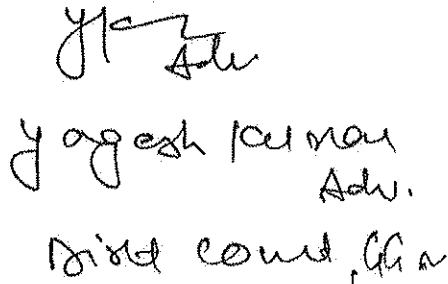 Adv
Yogesh Kumar
Adv.
Distt Court, GGN